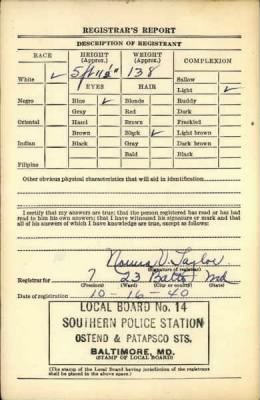 REGISTRAR'S REPORT
DESCRIPTION OF REGISTRANT
RACE HEIGHT (Approx.) WEIGHT (Approx.) COMPLEXION
White ✓ 5 ft 11½" 138 Sallow
EYES HAIR Light ✓
Negro Blue ✓ Blonde Ruddy
Gray Red Dark
Oriental Hazel Brown Freckled
Brown Black ✓ Light brown
Indian Black Gray Dark brown
Bald Black
Filipino
Other obvious physical characteristics that will aid in identification
I certify that my answers are true; that the person registered has read or has had
read to him his own answers; that I have witnessed his signature or mark and that
all of his answers of which I have knowledge are true, except as follows:
V. Taylor
(Signature of registrar)
Registrar for 7 23 Balto Md
(Precinct) (Ward) (City or county) (State)
Date of registration 10-16-40
LOCAL BOARD No. 14
SOUTHERN POLICE STATION
OSTEND & PATAPSCO STS.
BALTIMORE, MD.
(STAMP OF LOCAL BOARD)
(The stamp of the Local Board having jurisdiction of the registrant
shall be placed in the above space.)